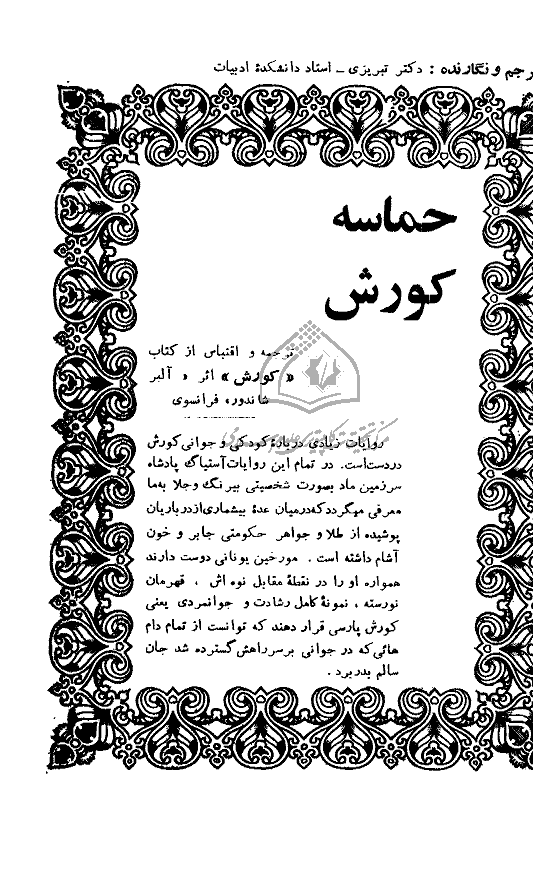 رجم و نگارنده : دکتر تبریزی ـ استاد دانشکدهٔ ادبیات
حماسه
کورش
ترجمه و اقتباس از کتاب
« کورش » اثر « آلبر
شاندور» فرانسوی
روایات زیادی دربارهٔ کودکی و جوانی کورش
در دست است. در تمام این روایات آستیاگ پادشاه
سرزمین ماد بصورت شخصیتی بیرنگ و جلا به ما
معرفی میگردد که در میان عدهٔ بیشماری از درباریان
پوشیده از طلا و جواهر حکومتی جابر و خون
آشام داشته است . مورخین یونانی دوست دارند
همواره او را در نقطهٔ مقابل نوه اش ، قهرمان
نورسته ، نمونهٔ کامل رشادت و جوانمردی یعنی
کورش پارسی قرار دهند که توانست از تمام دام
هائی که در جوانی بر سر راهش گسترده شد جان
سالم بدر برد .